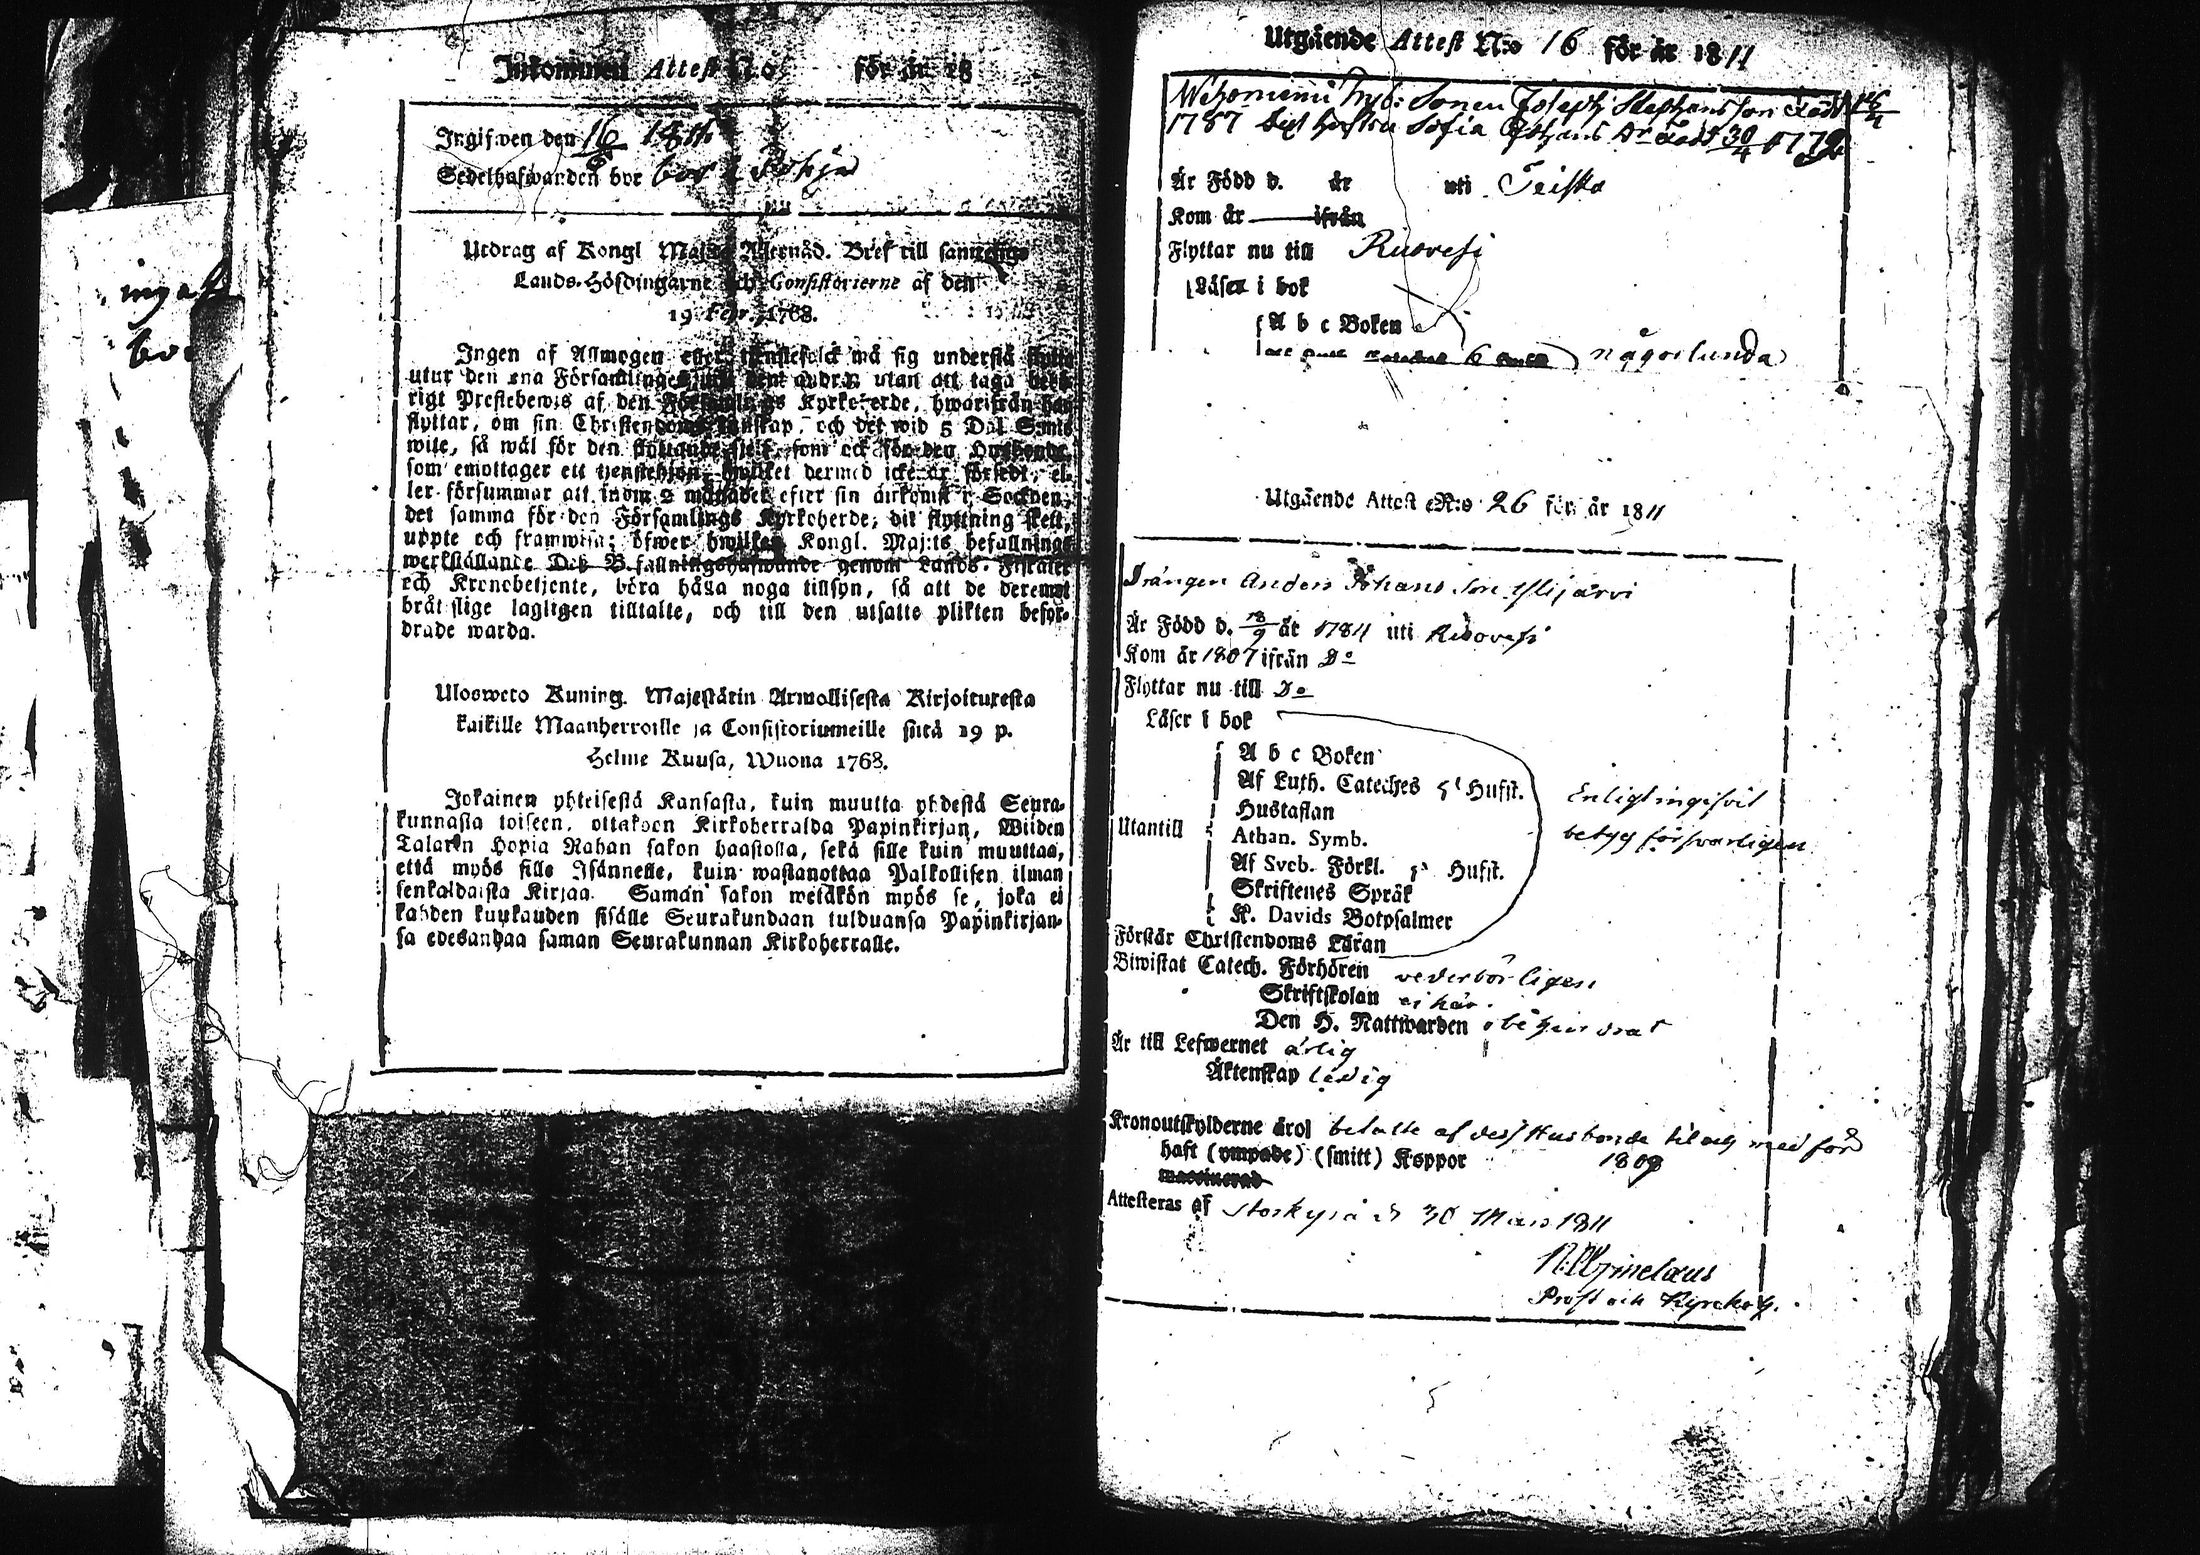 Inkommen Attest N:o för år 18
Ingifwen den 16 1811
Sedelhafwanden bor bor i Pohja
Utdrag af Kongl Maj:ts Allernåd. Bref till samtelige
Lands-Höfdingarne och Consistorierne af den
19 Febr. 1768.
Ingen af Allmogen eller tjenstefolck må sig understå flytta
utur den ena Församlingen uti den andra utan att taga behö-
rigt Prestebewis af den Församlings Kyrkoherde, hwarifrån han
flyttar, om sin Christendoms kunskap, och det wid 5 Dal. S:mts
wite, så wäl för den flyttande sielf, som ock för den Husbonde,
som emottager ett tjenstehjon, hwilket dermed icke är försedt, el-
ler försummar att inom 2 månader efter sin ankomst i Socknen,
det samma för den Församlings Kyrkoherde, dit flyttning skett,
uppte och framwisa; öfwer hwilken Kongl. Maj:ts befallnings
werkställande Deß Befallningshafwande genom Lands-Fiskaler
och Kronobetjente, böra hålla noga tillsyn, så att de deremot
bråt slige lagligen tilltalte, och till den utsatte plikten befor-
drade warda.
Ulosweto Kuning. Majestätin Armollisesta Kirjoituxesta
kaikille Maanherroille ja Consistoriumeille siitä 19 p.
Helme Kuusa, Wuona 1768.
Jokainen yhteisestä Kansasta, kuin muutta yhdestä Seura-
kunnasta toiseen, ottakoon Kirkoherralda Papinkirjan, Wiiden
Talarin Hopia Rahan sakon haastolla, sekä sille kuin muuttaa,
että myös sille Isännelle, kuin wastanottaa Palkollisen ilman
senkaldaista Kirjaa. Saman sakon wetäkön myös se, joka ei
kahden kuukauden sisälle Seurakundaan tulduansa Papinkirjan-
sa edesanna saman Seurakunnan Kirkoherralle.
Utgående Attest N:o 16 för år 1811
Sonen Joseph Stephansson Född 16/4
1787 Sofia Född 30/4 1779
Är Född d. år uti Teisko
Kom år ifrån
Flyttar nu till Ruovesi
Läser i bok
A b c Boken
någorlunda
Utgående Attest N:o 26 för år 1811
Drängen Anders Johans Son Ylijärvi
Är Född d. 18/9 år 1784 uti Ruovesi
Kom år 1807 ifrån Do
Flyttar nu till Do
Läser i bok
A b c Boken
Af Luth. Cateches Hufst.
Hustaflan
Utantill Athan. Symb.
Af Sveb. Förkl. Hufst.
Skriftenes Språk
K. Davids Botpsalmer
Enligt ingifvit
betyg försvarligen
Förstår Christendoms Läran
Biwistat Catech. Förhören vederbörligen
Skriftskolan ej här.
Den H. Nattwarden obehindrat
Är till Lefwernet ärlig
Äktenskap ledig
Kronoutskylderne äro betalte af dess Husbonde til och med för
haft (ympade) (smitt) Koppor 1808
Attesteras af Storkyro d 30 Mars 1811
Prost och Kyrckoh.